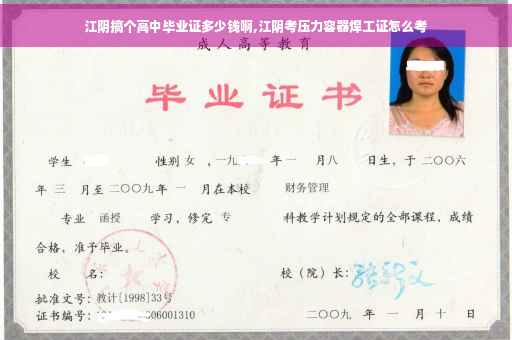 江阴搞个高中毕业证多少钱啊,江阴考压力容器焊工证怎么考
成人高等教育
毕业证书
学生 性别 女 ,一九 年 一 月 八 日生，于 二〇〇六
年 三 月至 二〇〇九 年 一 月在本校 财务管理
专业 函授 学习，修完 专 科教学计划规定的全部课程，成绩
合格，准予毕业。
校 名： 校（院）长：
批准文号：教计[1998]33号
证书编号： 06001310 二〇〇九 年 一 月 十 日